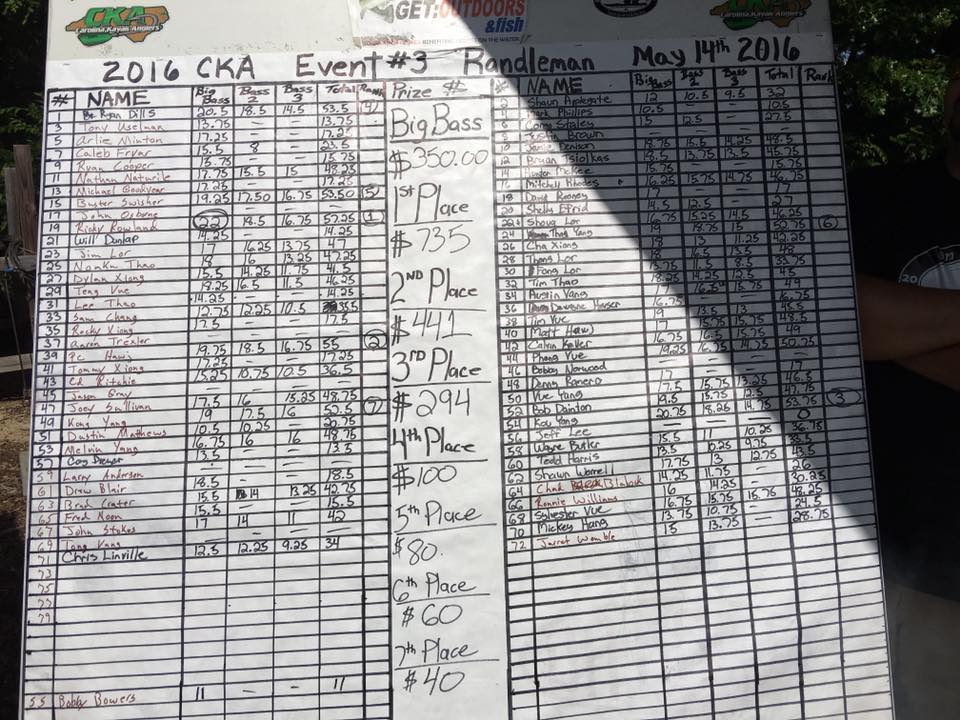 CKA
Carolina Kayak Anglers
GET:OUTDOORS
&fish
CKA
Carolina Kayak Anglers
2016 CKA Event #3 Randleman May 14th 2016
# NAME Big Bass Bass 2 Bass 3 Total Rank
1 Ryan Dills 20.5 18.5 14.5 53.5 4
3 Tony Uselman 13.75 — — 13.75
5 Arlie Minton 17.25 — — 17.25
7 Caleb Fryar 15.5 8 — 23.5
9 Ryan Cooper 15.75 — — 15.75
11 Nathan Naturile 17.75 15.5 15 48.25
13 Michael Gookyear 17.25 — — 17.25
15 Buster Swisher 19.25 17.50 16.75 53.50 5
17 John Osborne — — —
19 Ricky Rowland 22 18.5 16.75 57.25 1
21 Will Dunlap 14.25 — — 14.25
23 Jim Lor 16.25 13.75 47
25 Nonku Thao 18 16 13.25 47.25
27 Dylan Xiong 15.5 14.25 11.75 41.5
29 Teng Vue 18.25 16.5 11.5 46.25
31 Lee Thao 14.25 — — 14.25
33 Sam Chang 12.75 12.25 10.5 35.5
35 Rocky Xiong 17.5 — — 17.5
37 Aaron Trexler 19.75 18.5 16.75 55 2
39 Pc Hawj 17.25 — — 17.25
41 Tommy Xiong 15.25 10.75 10.5 36.5
43 Ed Ritchie — — —
45 Jason Gray 17.5 16 15.25 48.75
47 Joey Sullivan 19 17.5 16 52.5 7
49 Kong Yang 10.5 10.25 —
51 Dustin Mathews 16.75 16 16 48.75
53 Melvin Yang 13.5 — — 13.5
57 Dreyer — — —
59 Larry Anderson 18.5 — — 18.5
61 Drew Blair 15.5 14 13.25 42.75
63 Brad Crater 15.5 — — 15.5
65 Fred Moon 17 14 11 42
67 John Stokes — — —
69 Tong Vang 12.5 12.25 9.25 34
71 Chris Linville
73
75
77
79
55 Bobby Bowers 11 — — 11
Prize $
Big Bass
$350.00
1st Place
$735
2nd Place
$441
3rd Place
$294
4th Place
$100
5th Place
$80.
6th Place
$60
7th Place
$40
# NAME Big Bass Bass 2 Bass 3 Total Rank
2 Shaun Applegate 12 10.5 9.5 32
Phillips 10.5 — — 10.5
Staley 15 12.5 — 27.5
Brown — — —
10 Jamie Denison 18.75 15.5 14.25 48.5
12 Bryan Tsiolkas 18.5 13.75 13.5 45.75
14 McKee — —
16 Mitchell Rhodes 16.25 15.75 14.75 46.75
18 Doug Rooney 17 — — 17
20 Shelly Efird 14.5 12.5 — 27
22 Shoua Lor 16.75 15.25 14.5 46.25
24 Thay Yang 19 18.75 15 52.75 6
26 Cha Xiong 18 13 11.25 42.25
28 Thong Lor 18 16.5 13.5 48
30 Fong Lor 11.5 8.5
32 Tim Thao 18.25 14.25 12.5 45
34 Austin Vang 49
36 Dewayne Hauser 16.75 — —
38 Tim Vue 19 13.5 13
40 Matt Hawj 17 15.75 15.75 48.5
42 Calvin Keller 16.75 16.75 15.5 49
44 Phong Vue 19.25 14.75 50.75
46 Bobby Norwood — — —
48 Ranero 17 — — 17
50 Vue Yang 17.5 15.75 13.25 46.5
52 Bob Dainton 19.5 15.75 12.5
54 Kou Yang 20.75 18.25 14.75 53.75 3
56 Jeff Lee — — — 0
58 Wayne Butler 15.5 11 10.25 36.75
60 Todd Harris 13.5 10.25 9.75
62 Shawn Worrell 17.75 13 12.75 43.5
64 Chad Blalock 14.25 11.75 — 26
66 Ronnie Williams 16 14.25 — 30.25
68 Sylvester Vue 16.75 15.75 15.75 48.25
70 Mickey Hang 13.75 10.75 — 24.5
72 Jarret Womble 15 13.75 — 28.75